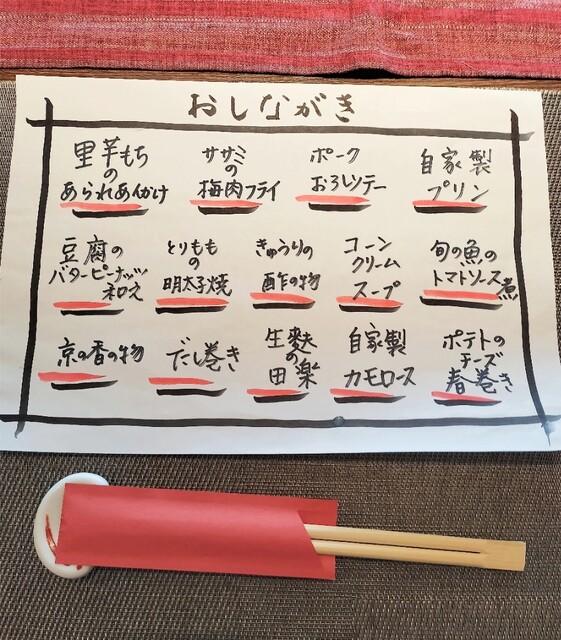 おしながき
里芋もち
の
あられあんかけ
ササミ
の
梅肉フライ
ポーク
おろしソテー
自家製
プリン
豆腐の
バターピーナッツ
和え
とりもも
の
明太子焼
きゅうりの
酢の物
コーン
クリーム
スープ
旬の魚の
トマトソース煮
京の香の物
だし巻き
生麩
の
田楽
自家製
カモロース
ポテトの
チーズ
春巻き